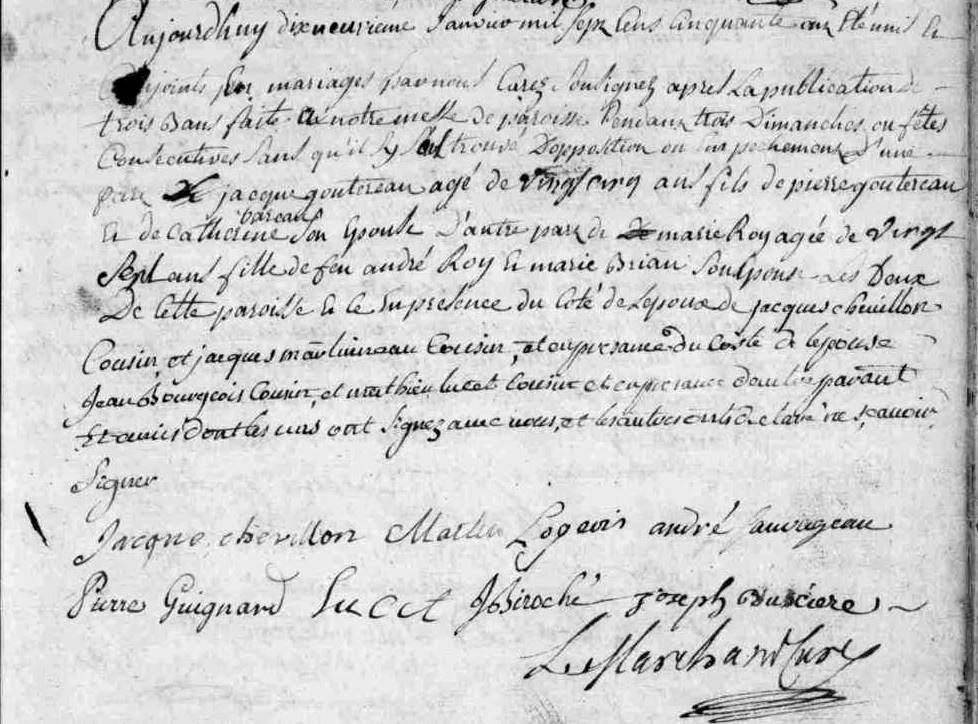 Aujourdhuy dixneuvieme Janvier mil sept cens cinquante onze été unis Et
Conjoints par mariages par nous Curez soussignez apres La publication de
trois Bans faite a notre messe de paroisse Pendant trois Dimanches ou fêtes
Consecutives Sans qu'il sy soit trouvé D'opposition ou Empechement d'une
part De jacque goutereau agé de vingt cinq ans fils de pierre goutereau
Et de Catherine bareau Son Epouse D'autre part de marie Roy agée de vingt
Sept ans fille de feu andré Roy Et marie Brian Son Epouse Les Deux
De Cette paroisse Et Ce En presence du Coté de Lepoux de jacques chevillon
Cousin, et jacques Cousin, et en presance du Costé de lepouse
Jean Bourgeois Cousin, et mathieu lucet Cousin et en presance dautre parant
Et amis dont les uns ont Signez avec nous, et les autres ont declaré ne scavoir
Signer
Jacque chevillon Mathu Logeois andré Sauvageau
Pierre Guignard Lucet J Biroché Joseph Bussiere
Le Marchand Curé